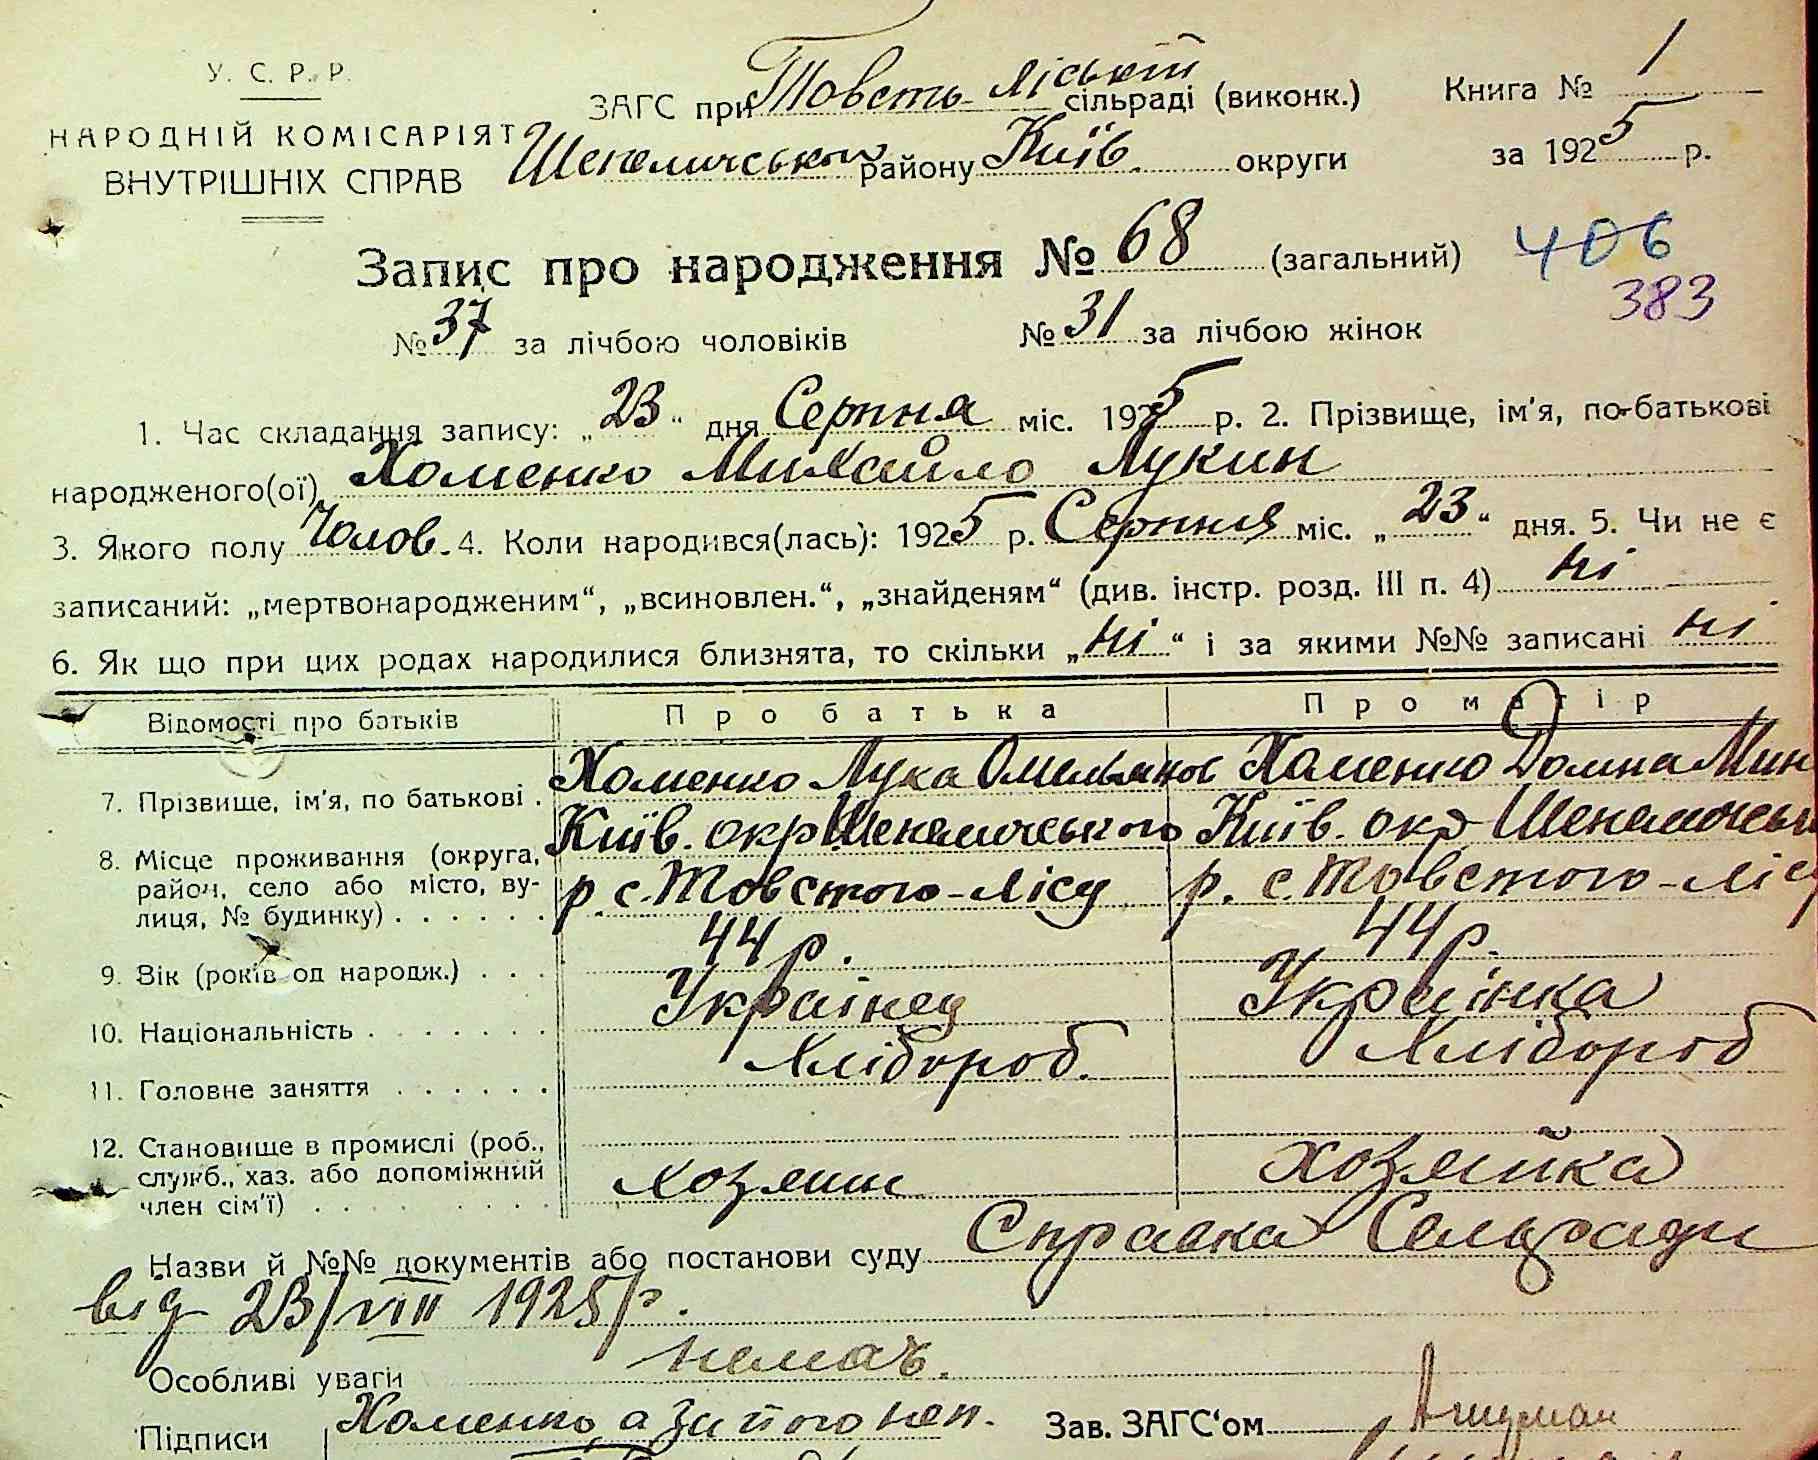 У. С. Р. Р.
НАРОДНІЙ КОМІСАРІЯТ
ВНУТРІШНІХ СПРАВ
ЗАГС при Товсто-Ліській сільраді (виконк.)
Шепелицького району Київ. округи
Книга № 1
за 1925 р.
Запис про народження № 68 (загальний)
406
383
№ 37 за лічбою чоловіків № 31 за лічбою жінок
1. Час складання запису: „23“ дня Серпня міс. 1925 р. 2. Прізвище, ім'я, по-батькові
народженого(ої) Хоменко Михайло Лукин
3. Якого полу Чолов. 4. Коли народився(лась): 1925 р. Серпня міс. „23“ дня. 5. Чи не є
записаний: „мертвонародженим“, „всиновлен.“, „знайденям“ (див. інстр. розд. III п. 4) ні
6. Як що при цих родах народилися близнята, то скільки „ні“ і за якими №№ записані ні
Відомості про батьків Про батька Про матір
7. Прізвище, ім'я, по батькові . Хоменко Лука Омельянов Хоменко Домна Мин
8. Місце проживання (округа, район, село або місто, вулиця, № будинку) . . . . . .
Київ. окр Шепелицького
р. с. Товстого-Лісу
Київ. окр Шепелицьк
р. с. Товстого-Ліс
9. Вік (років од народж.) . . . 44 р. 44 р.
10. Національність . . . . . . . Українец Українка
11. Головне заняття . . . . . . Хлібороб. Хлібороб
12. Становище в промислі (роб., служб., хаз. або допоміжний член сім'ї) . . . . . . . . .
хозяин хозяйка
Назви й №№ документів або постанови суду Справка Сельради
від 23/VIII 1925 р.
Особливі уваги немає.
Підписи Хоменко, а за його неп. Зав. ЗАГС‘ом